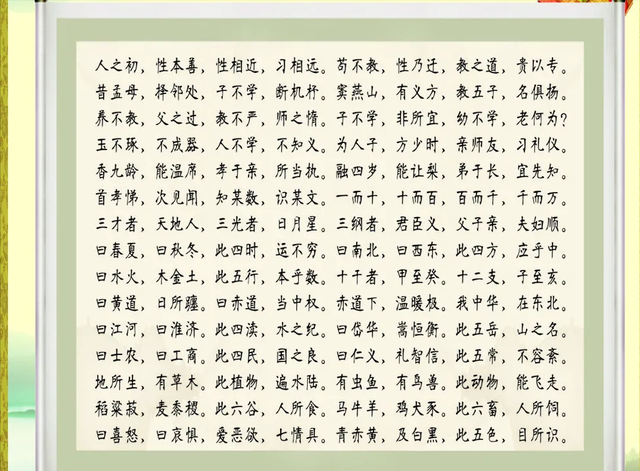 人之初，性本善，性相近，习相远。苟不教，性乃迁，教之道，贵以专。
昔孟母，择邻处，子不学，断机杼。窦燕山，有义方，教五子，名俱杨。
养不教，父之过，教不严，师之惰。子不学，非所宜，幼不学，老何为？
玉不琢，不成器，人不学，不知义。为人子，方少时，亲师友，习礼仪。
香九龄，能温席，孝于亲，所当执。融四岁，能让梨，弟于长，宜先知。
首孝悌，次见闻，知某数，识某文。一而十，十而百，百而千，千而万。
三才者，天地人，三光者，日月星。三纲者，君臣义，父子亲，夫妇顺。
曰春夏，曰秋冬，此四时，运不穷。曰南北，曰西东，此四方，应乎中。
曰水火，木金土，此五行，本乎数。十干者，甲至癸。十二支，子至亥。
曰黄道，日所躔。曰赤道，当中权。赤道下，温暖极。我中华，在东北。
曰江河，曰淮济。此四渎，水之纪。曰岱华，嵩恒衡。此五岳，山之名。
曰士农，曰工商。此四民，国之良。曰仁义，礼智信，此五常，不容紊。
地所生，有草木。此植物，遍水陆。有虫鱼，有鸟兽。此动物，能飞走。
稻粱菽，麦黍稷。此六谷，人所食。马牛羊，鸡犬豕。此六畜，人所饲。
曰喜怒，曰哀惧，爱恶欲，七情具。青赤黄，及白黑，此五色，目所识。